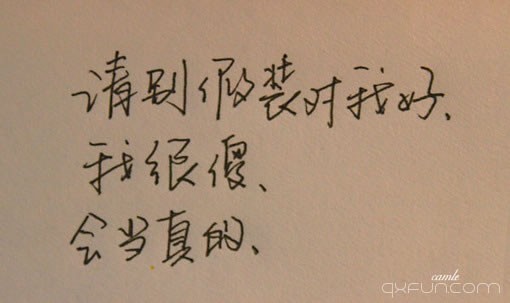 请别假装对我好、
我很傻、
会当真的、
camle
qxfun.com